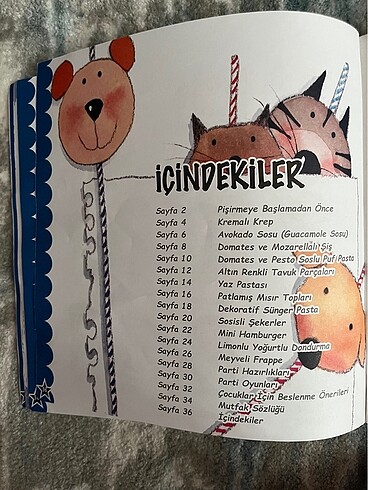 İÇİNDEKİLER
Sayfa 2 Pişirmeye Başlamadan Önce
Sayfa 4 Kremalı Krep
Sayfa 6 Avokado Sosu (Guacamole Sosu)
Sayfa 8 Domates ve Mozarellalı Şiş
Sayfa 10 Domates ve Pesto Soslu Puf Pasta
Sayfa 12 Altın Renkli Tavuk Parçaları
Sayfa 14 Yaz Pastası
Sayfa 16 Patlamış Mısır Topları
Sayfa 18 Dekoratif Sünger Pasta
Sayfa 20 Sosisli Şekerler
Sayfa 22 Mini Hamburger
Sayfa 24 Limonlu Yoğurtlu Dondurma
Sayfa 26 Meyveli Frappe
Sayfa 28 Parti Hazırlıkları
Sayfa 30 Parti Oyunları
Sayfa 32 Çocuklar İçin Beslenme Önerileri
Sayfa 34 Mutfak Sözlüğü
Sayfa 36 İçindekiler